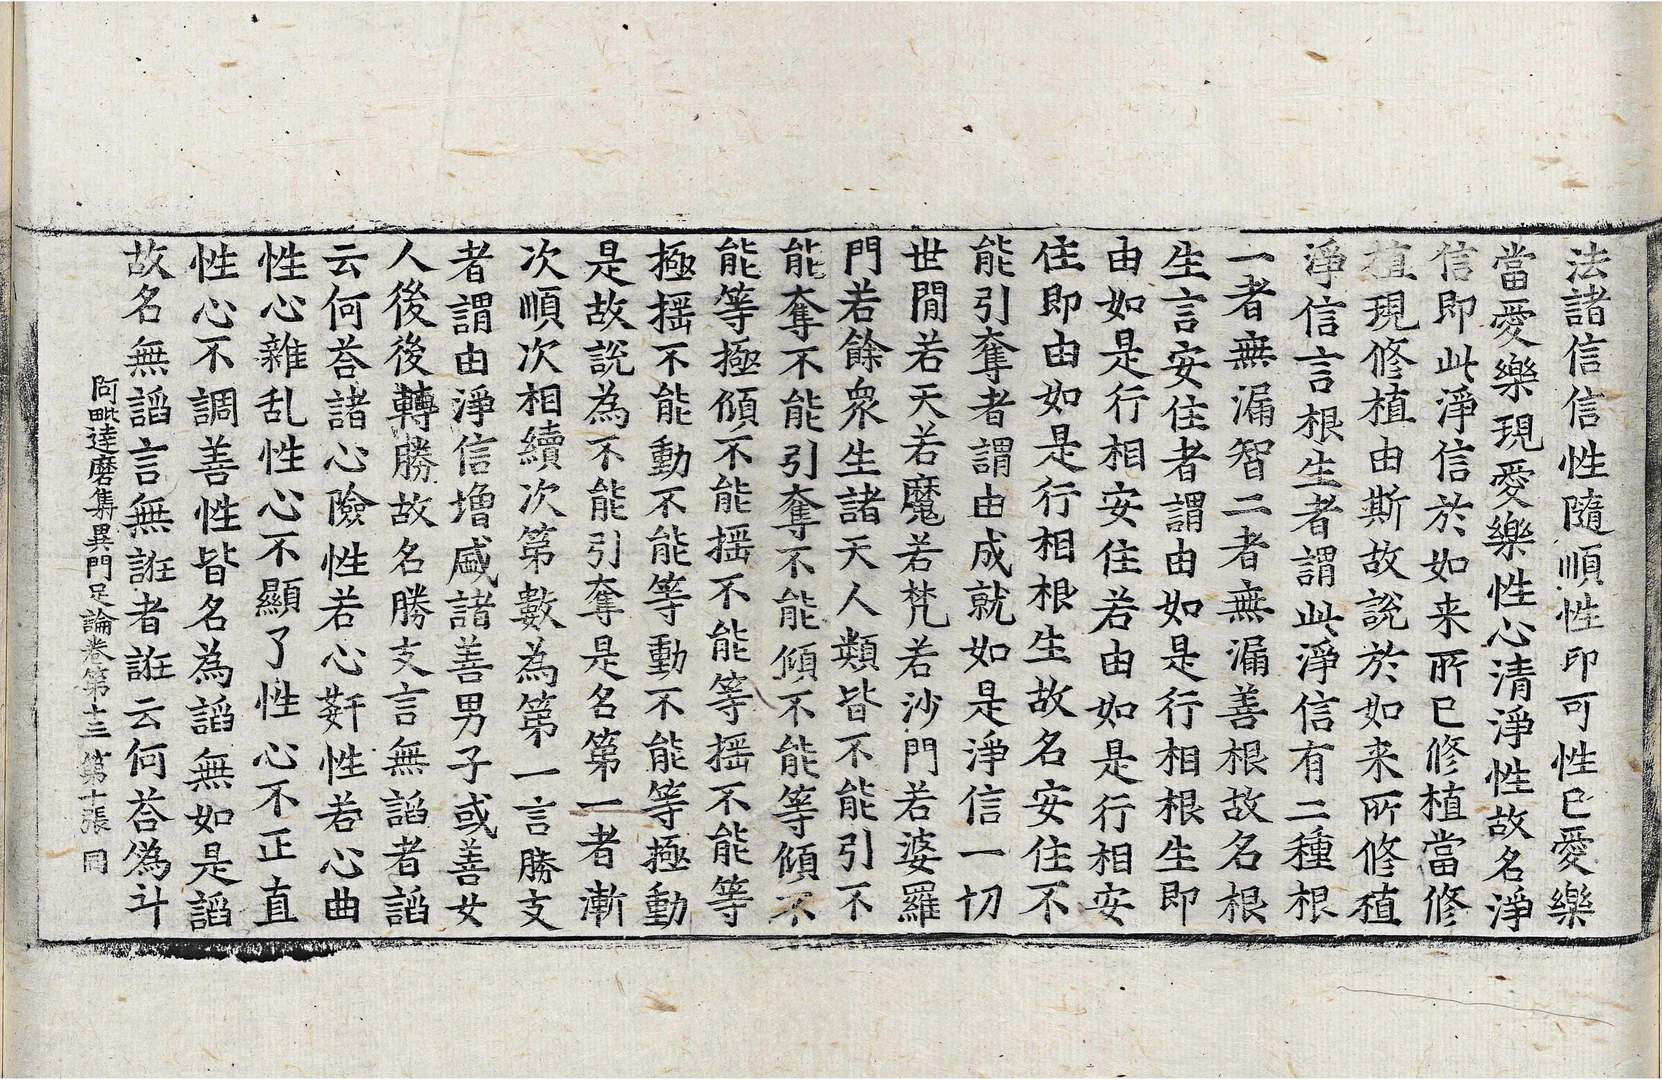 法諸信信性隨順性印可性已愛樂
當愛樂現愛樂性心清淨性故名淨
信即此淨信於如来所已修植當修
植現修植由斯故說於如来所修植
淨信言根生者謂此淨信有二種根
一者無漏智二者無漏善根故名根
生言安住者謂由如是行相根生即
由如是行相安住若由如是行相安
住即由如是行相根生故名安住不
能引奪者謂由成就如是淨信一切
世閒若天若魔若梵若沙門若婆羅
門若餘衆生諸天人類皆不能引不
能奪不能引奪不能傾不能等傾不
能等極傾不能揺不能等揺不能等
極揺不能動不能等動不能等極動
是故說為不能引奪是名第一者漸
次順次相續次第數為第一言勝支
者謂由淨信增盛諸善男子或善女
人後後轉勝故名勝支言無謟者謟
云何荅諸心險性若心姧性若心曲
性心雜乱性心不顯了性心不正直
性心不調善性皆名為謟無如是謟
故名無謟言無誑者誑云何荅偽斗
阿毗達磨集異門足論卷第十三 第十張 同